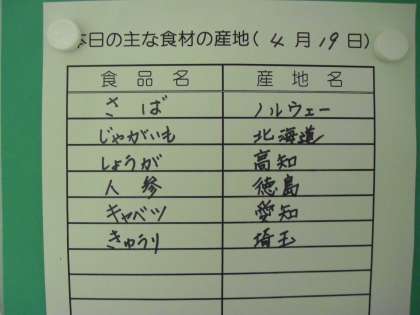 本日の主な食材の産地(4月19日)
食品名 産地名
さば ノルウェー
じゃがいも 北海道
しょうが 高知
人参 徳島
キャベツ 愛知
きゅうり 埼玉